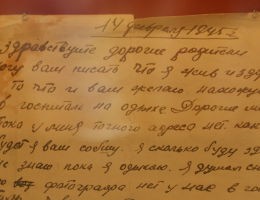 14 февраля 1945 г.
Здравствуйте дорогие родители
могу вам писать что я жив и здо
то что и вам желаю нахожу
о госпитале на одыхе Дорогие м
пока у меня точного адреса нет как
будет я вам сообщу. я сколько буду зд
не знаю пока я одыхаю. Я думал сн
но фотографа нет у нас в го